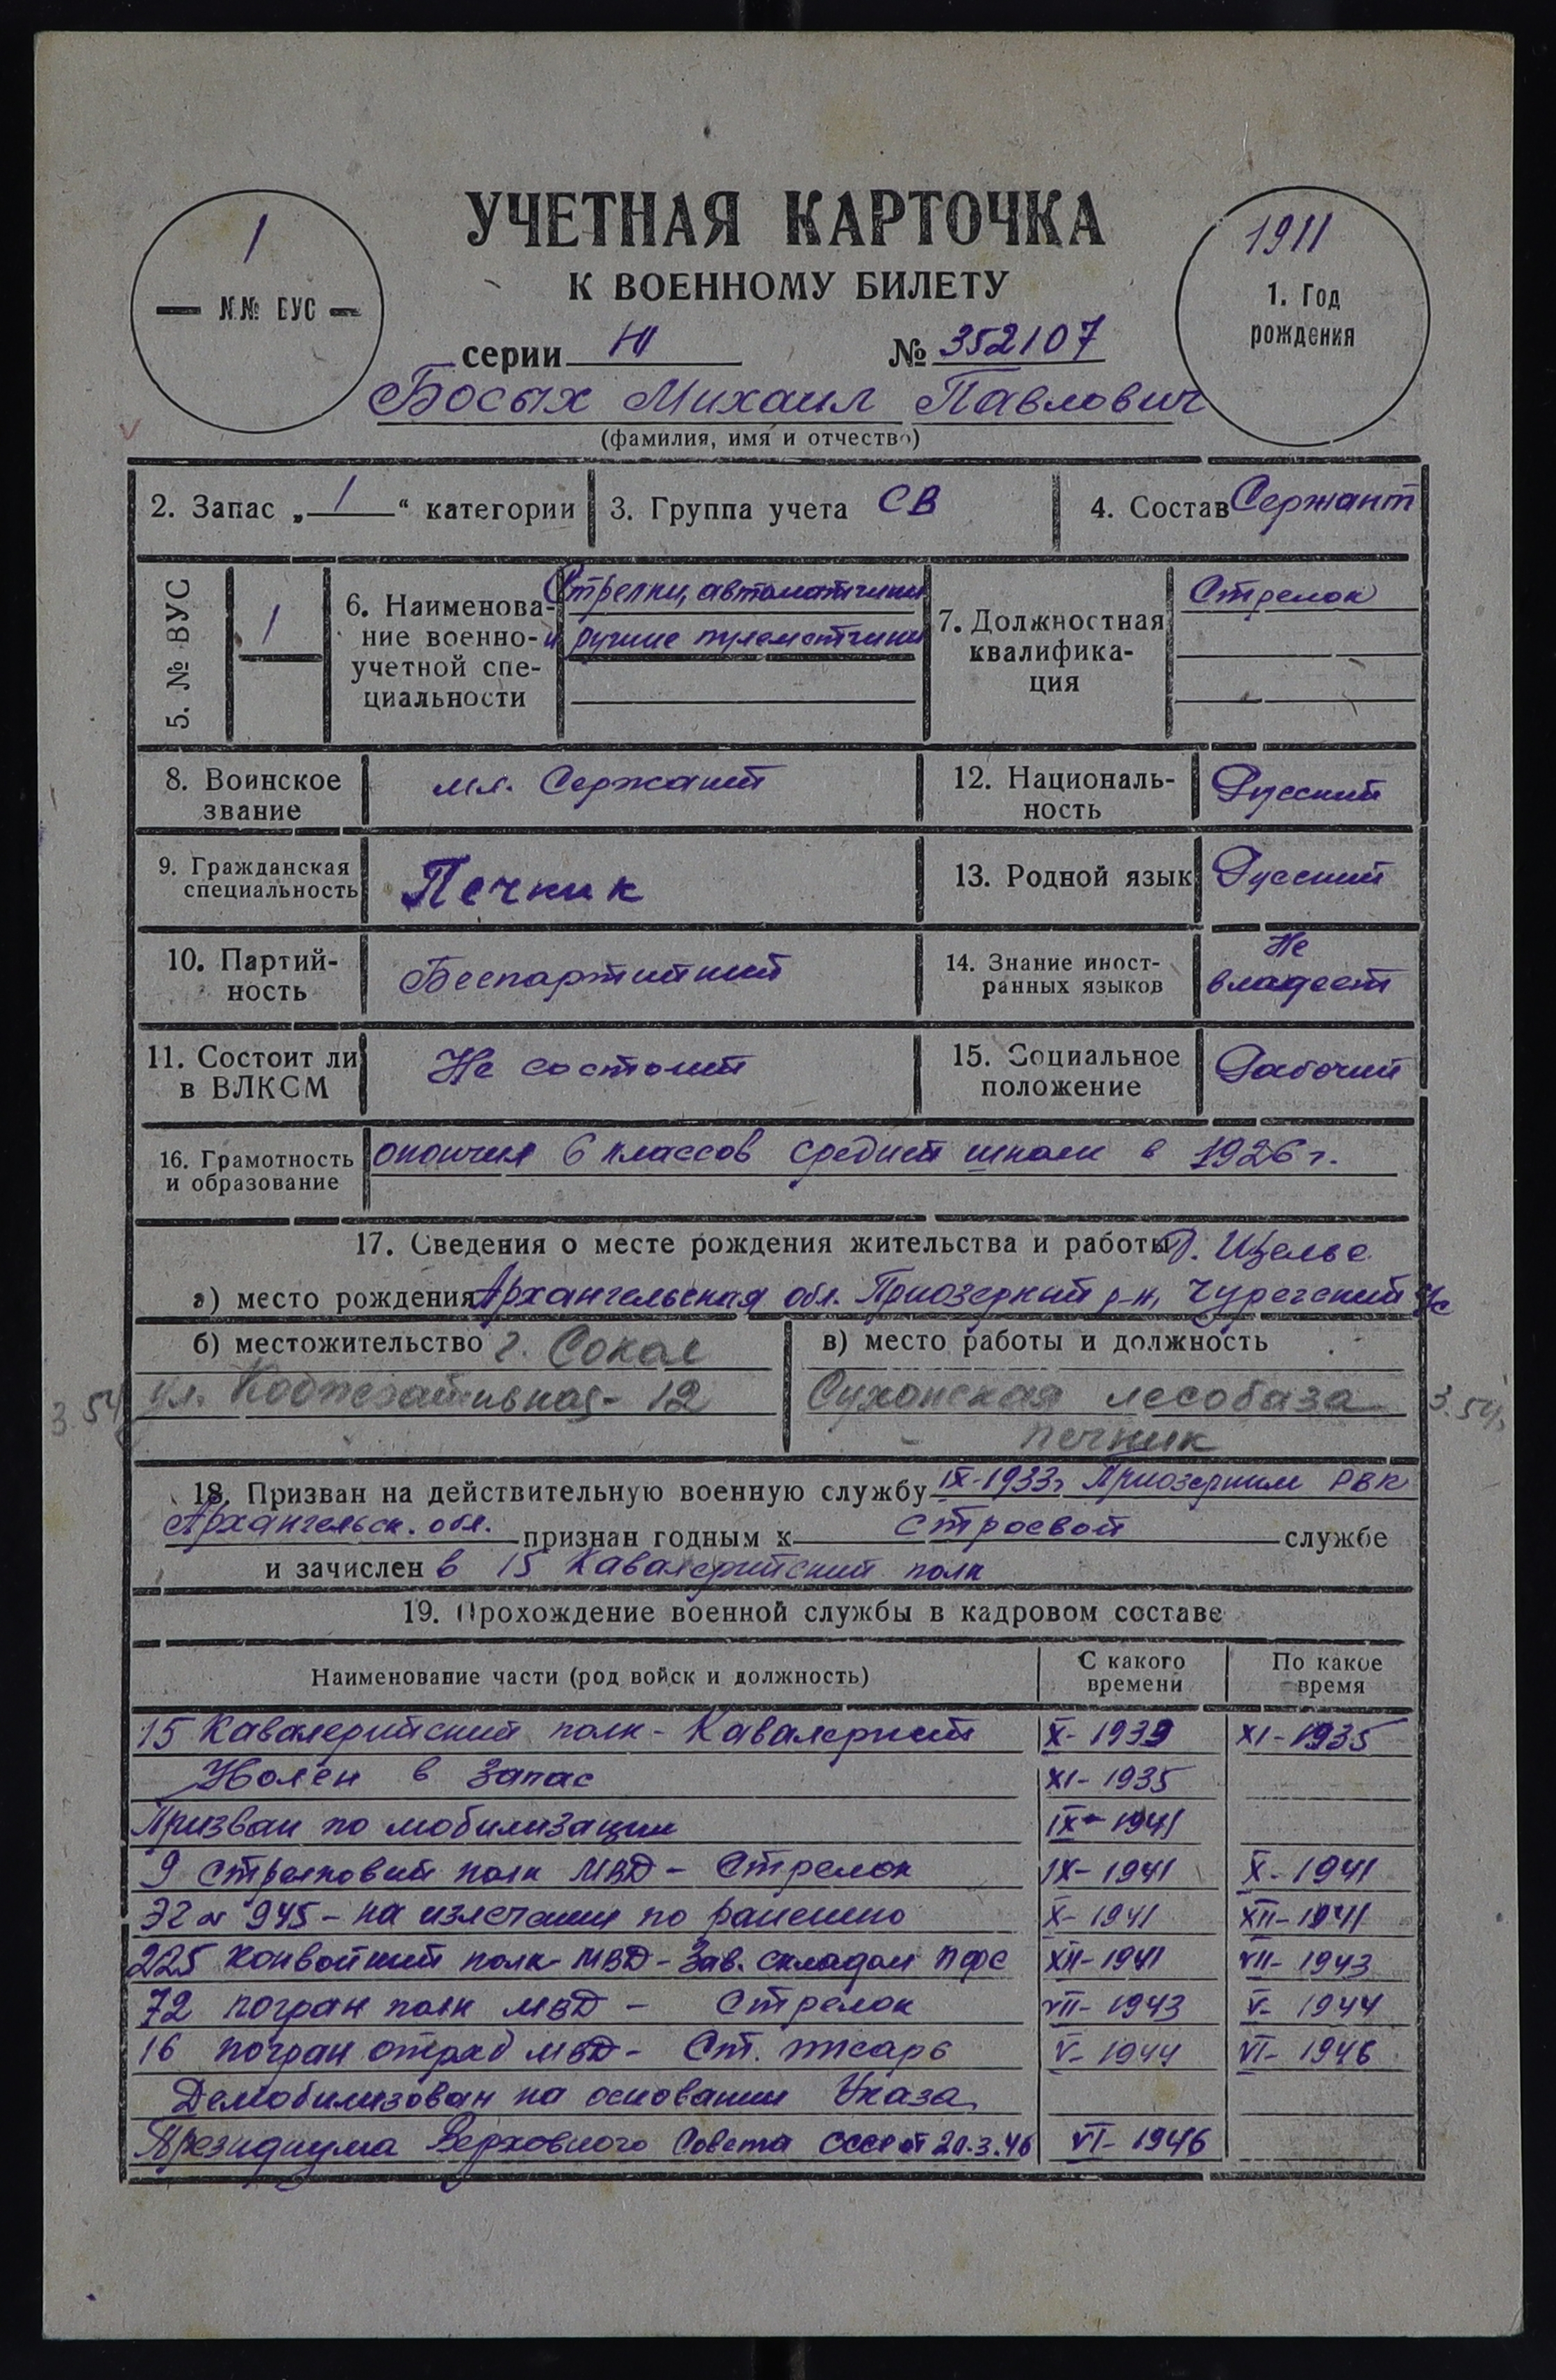 УЧЕТНАЯ КАРТОЧКА
К ВОЕННОМУ БИЛЕТУ
1
— №№ ВУС —
1911
1. Год
рождения
серии Ю № 352107
Босых Михаил Павлович
(фамилия, имя и отчество)
2. Запас „ 1 “ категории
3. Группа учета СВ
4. Состав Сержант
5. № ВУС
1
6. Наименова-
ние военно-
учетной спе-
циальности
Стрелки, автоматчики
и ручные пулеметчики
7. Должностная
квалифика-
ция
Стрелок
8. Воинское
звание
мл. Сержант
12. Националь-
ность
Русский
9. Гражданская
специальность
Печник
13. Родной язык
Русский
10. Партий-
ность
Беспартийный
14. Знание иност-
ранных языков
Не
владеет
11. Состоит ли
в ВЛКСМ
Не состоит
15. Социальное
положение
Рабочий
16. Грамотность
и образование
окончил 6 классов средней школы в 1926 г.
17. Сведения о месте рождения жительства и работы Д. Щелье
а) место рождения Архангельская обл. Приозерный р-н, Чурегский с/с
б) местожительство г. Сокол
ул. Кооперативная - 12
3.54
в) место работы и должность
Сухонская лесобаза
печник
3.54
18. Призван на действительную военную службу IX-1933г Приозерным РВК
Архангельск. обл. признан годным к строевой службе
и зачислен в 15 Кавалерийский полк
19. Прохождение военной службы в кадровом составе
Наименование части (род войск и должность)
С какого
времени
По какое
время
15 Кавалерийский полк - Кавалерист X-1933 XI-1935
Уволен в запас XI-1935
Призван по мобилизации IX-1941
9 стрелковый полк МВД - Стрелок IX-1941 X-1941
ЭГ № 945 - на излечении по ранению X-1941 XII-1941
225 конвойный полк МВД - Зав. складом ПФС XII-1941 VII-1943
72 погран полк МВД - Стрелок VII-1943 V-1944
16 погран отряд МВД - Ст. писарь V-1944 VI-1946
Демобилизован на основании Указа
Президиума Верховного Совета СССР от 20.3.46 VI-1946